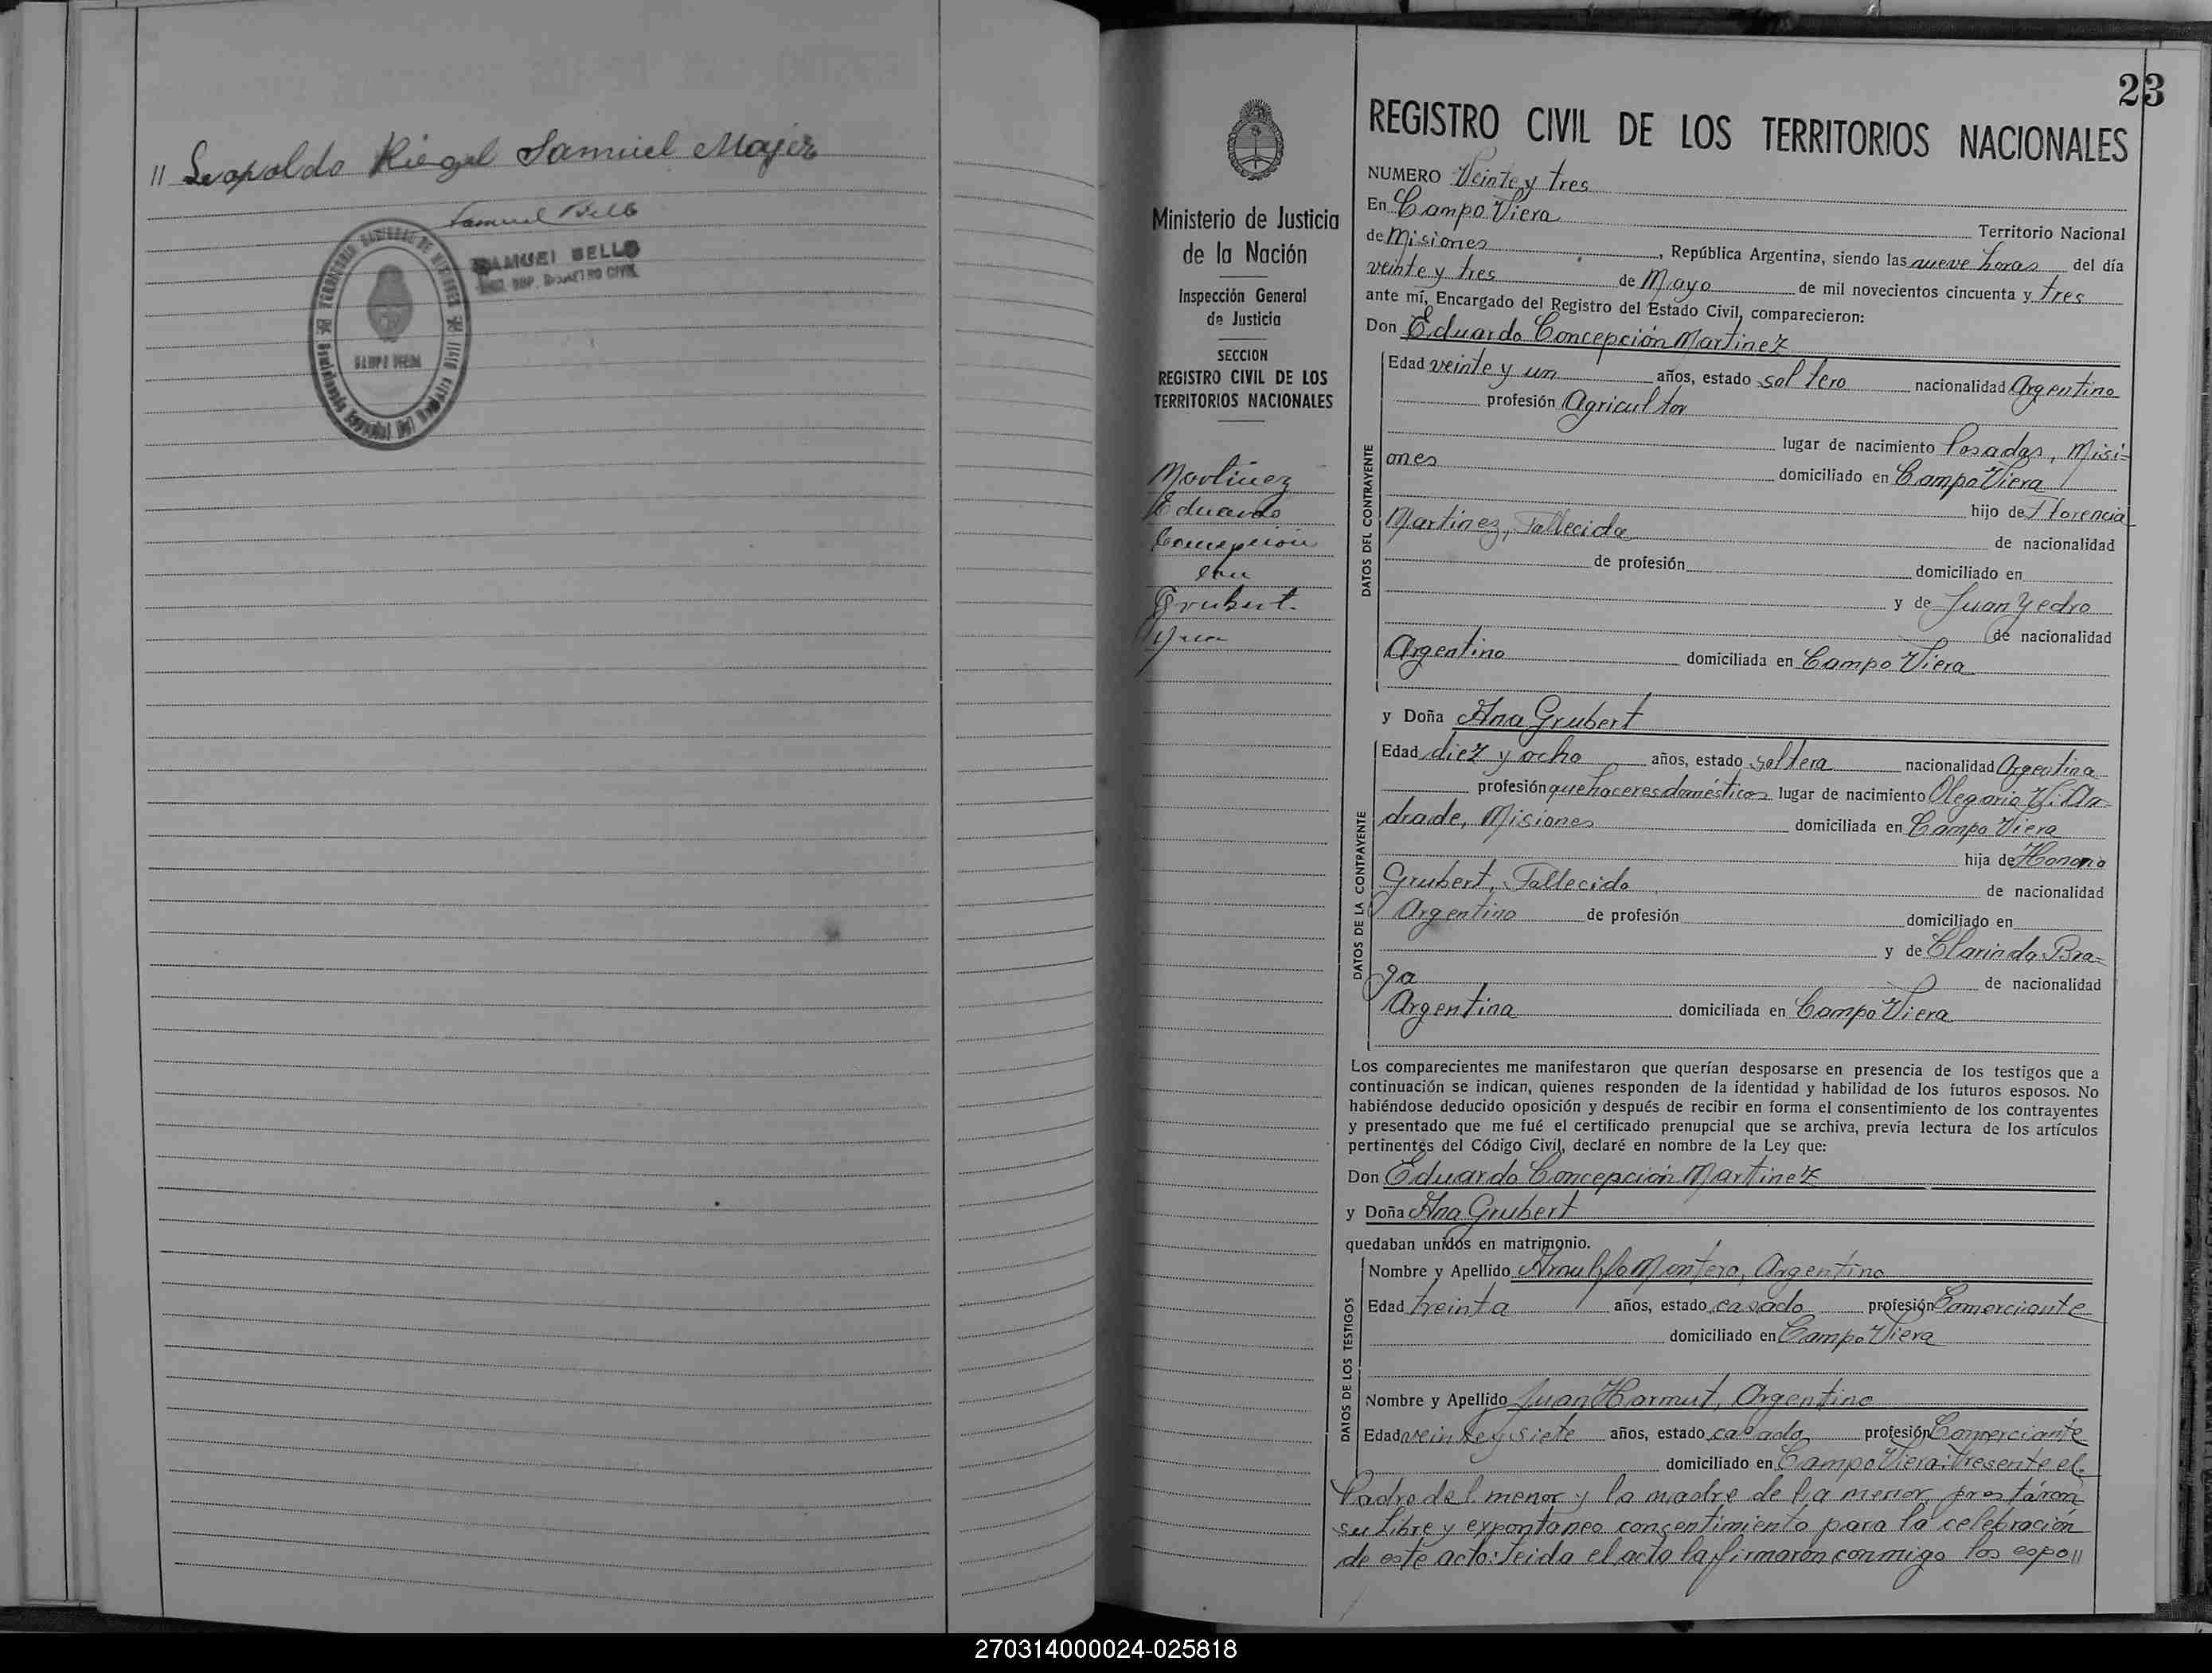 " Leopoldo Riegel Samuel Majer
Samuel Bello
SAMUEL BELLO
REGISTRO CIVIL
CAMPO VIERA
23
Ministerio de Justicia
de la Nación
Inspección General
de Justicia
SECCION
REGISTRO CIVIL DE LOS
TERRITORIOS NACIONALES
Martinez
Eduardo
Concepcion
con
Grubert
Ana
REGISTRO CIVIL DE LOS TERRITORIOS NACIONALES
NUMERO Veinte y tres
En Campo Viera Territorio Nacional
de Misiones, República Argentina, siendo las nueve horas del día
veinte y tres de Mayo de mil novecientos cincuenta y tres
ante mí, Encargado del Registro del Estado Civil, comparecieron:
Don Eduardo Concepción Martinez
DATOS DEL CONTRAYENTE
Edad veinte y un años, estado soltero nacionalidad Argentino
profesión Agricultor
lugar de nacimiento Posadas, Misi=
ones domiciliado en Campo Viera
hijo de Florencia
Martinez, Fallecida de nacionalidad
de profesión domiciliado en
y de Juan Yedro
de nacionalidad
Argentino domiciliada en Campo Viera
y Doña Ana Grubert
DATOS DE LA CONTRAYENTE
Edad diez y ocho años, estado soltera nacionalidad Argentina
profesión quehaceres domésticos lugar de nacimiento Olegario V. An-
drade, Misiones domiciliada en Campo Viera
hija de Honorio
Grubert, Fallecido de nacionalidad
Argentino de profesión domiciliado en
y de Clarinda Bra=
ga de nacionalidad
Argentina domiciliada en Campo Viera
Los comparecientes me manifestaron que querían desposarse en presencia de los testigos que a
continuación se indican, quienes responden de la identidad y habilidad de los futuros esposos. No
habiéndose deducido oposición y después de recibir en forma el consentimiento de los contrayentes
y presentado que me fué el certificado prenupcial que se archiva, previa lectura de los artículos
pertinentes del Código Civil, declaré en nombre de la Ley que:
Don Eduardo Concepción Martinez
y Doña Ana Grubert
quedaban unidos en matrimonio.
DATOS DE LOS TESTIGOS
Nombre y Apellido Arnulfo Montero, Argentino
Edad treinta años, estado casado profesión Comerciante
domiciliado en Campo Viera
Nombre y Apellido Juan Harmut, Argentino
Edad veinte y siete años, estado casado profesión Comerciante
domiciliado en Campo Viera: Presente el
Padre del menor y la madre de la menor, prestaron
su libre y expontaneo consentimiento para la celebración
de este acto: Leida el acta la firmaron conmigo los espo"
270314000024-025818